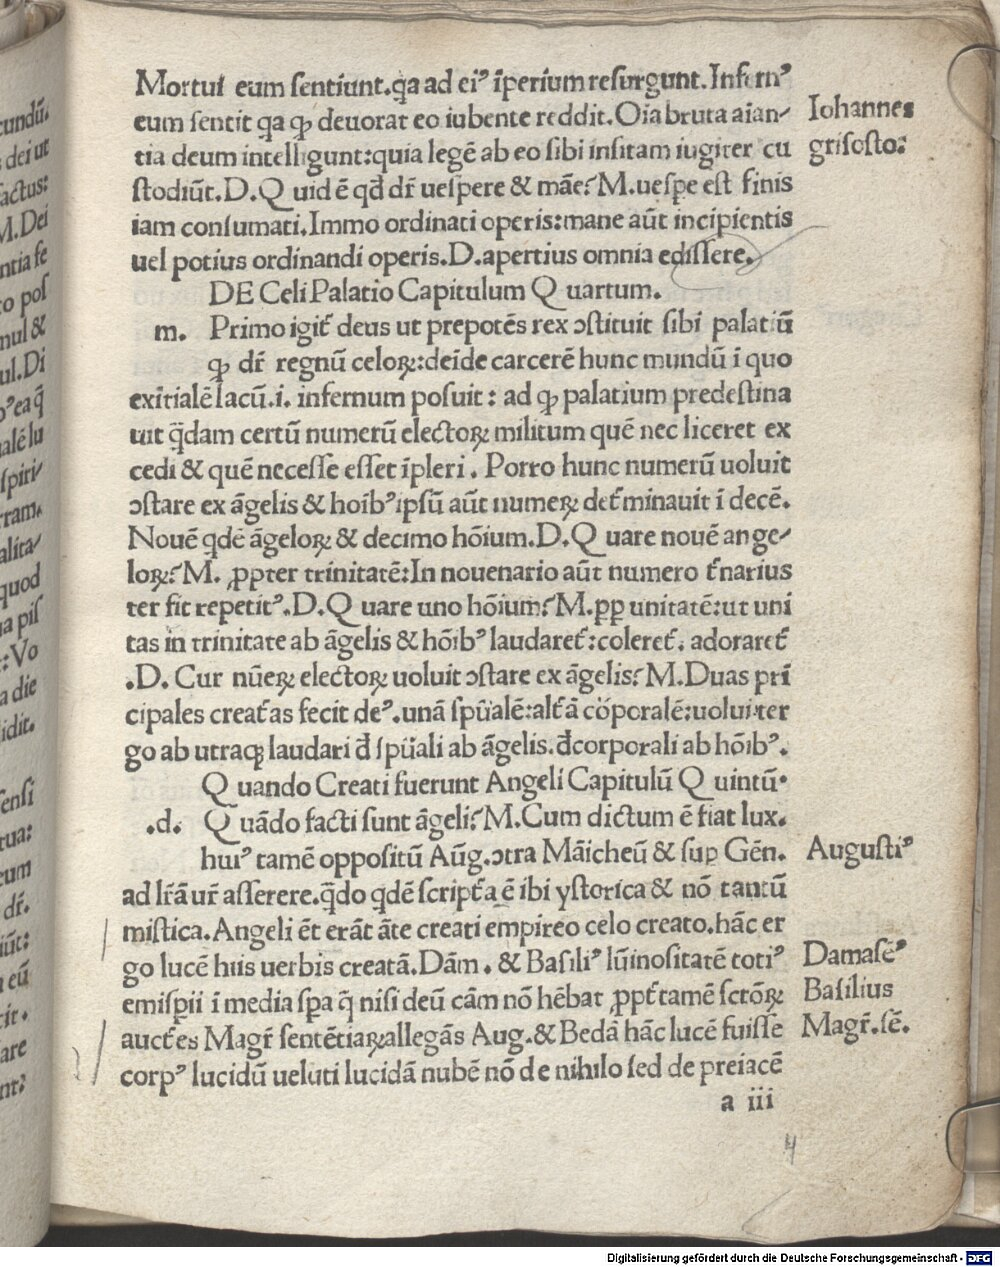 Mortui eum sentiunt.q̃a ad ei⁹ īperium resurgunt.Infern⁹
eum sentit q̃a ꝙ deuorat eo iubente reddit.Oīa bruta aīan-
tia deum intelligunt:quia legē ab eo sibi insitam iugiter cu
stodiūt.D.Quid ē qd̄ dr̄ uespere & māe?M.uespe est finis
iam consumati.Immo ordinati operis:mane aūt incipientis
uel potius ordinandi operis.D.apertius omnia edissere.
DE Celi Palatio Capitulum Quartum.
m. Primo igit̄ deus ut prepotēs rex ↄstituit sibi palatiū
ꝙ dr̄ regnū celoꝝ:deīde carcerē hunc mundū ī quo
exitialē lacū.i. infernum posuit: ad ꝙ palatium predestina
uit q̄dam certū numerū electoꝝ militum quē nec liceret ex
cedi & quē necesse esset īpleri. Porro hunc numerū uoluit
ↄstare ex āgelis & hoīb⁹ ipsū aūt numeꝝ det̄minauit ī decē.
Nouē qdē āgeloꝝ & decimo hōium.D.Quare nouē ange-
loꝝ?M. ꝓpter trinitatē:In nouenario aūt numero t̄narius
ter fit repetit⁹.D.Quare uno hōium?M.ꝓp unitatē:ut uni
tas in trinitate ab āgelis & hōib⁹ laudaret̄:coleret̄. adoraret̄
.D. Cur nūeꝝ electoꝝ uoluit ↄstare ex āgelis?M.Duas pri
cipales creat̄as fecit de⁹.unā spūalē:alt̄ā cōporalē:uoluit er
go ab utraqꝫ laudari đ spūali ab āgelis.đ corporali ab hōib⁹.
Quando Creati fuerunt Angeli Capitulū Quintū.
.d. Quādo facti sunt āgeli?M.Cum dictum ē fiat lux.
hui⁹ tamē oppositū Aūg.ↄtra Māicheū & sup Gēn.
ad lr̄ā ur̄ asserere.q̄do qdē script̄a ē ibi ystorica & nō tantū
mistica.Angeli ēt erāt āte creati empireo celo creato.hāc er
go lucē hiis uerbis creatā.Dām. & Basili⁹ lūinositatē toti⁹
emispii ī media spa q̄ nisi deū cām nō hēbat ꝓpt̄ tamē sctōꝝ
auct̄es Magr̄ sentētiaꝝ allegās Aug.& Bedā hāc lucē fuisse
corp⁹ lucidū ueluti lucidā nubē nō de nihilo sed de preiacē
a iii
4
Iohannes
grisosto:
Augusti⁹
Damasē⁹
Basilius
Magr̄.sē.
Digitalisierung gefördert durch die Deutsche Forschungsgemeinschaft - DFG